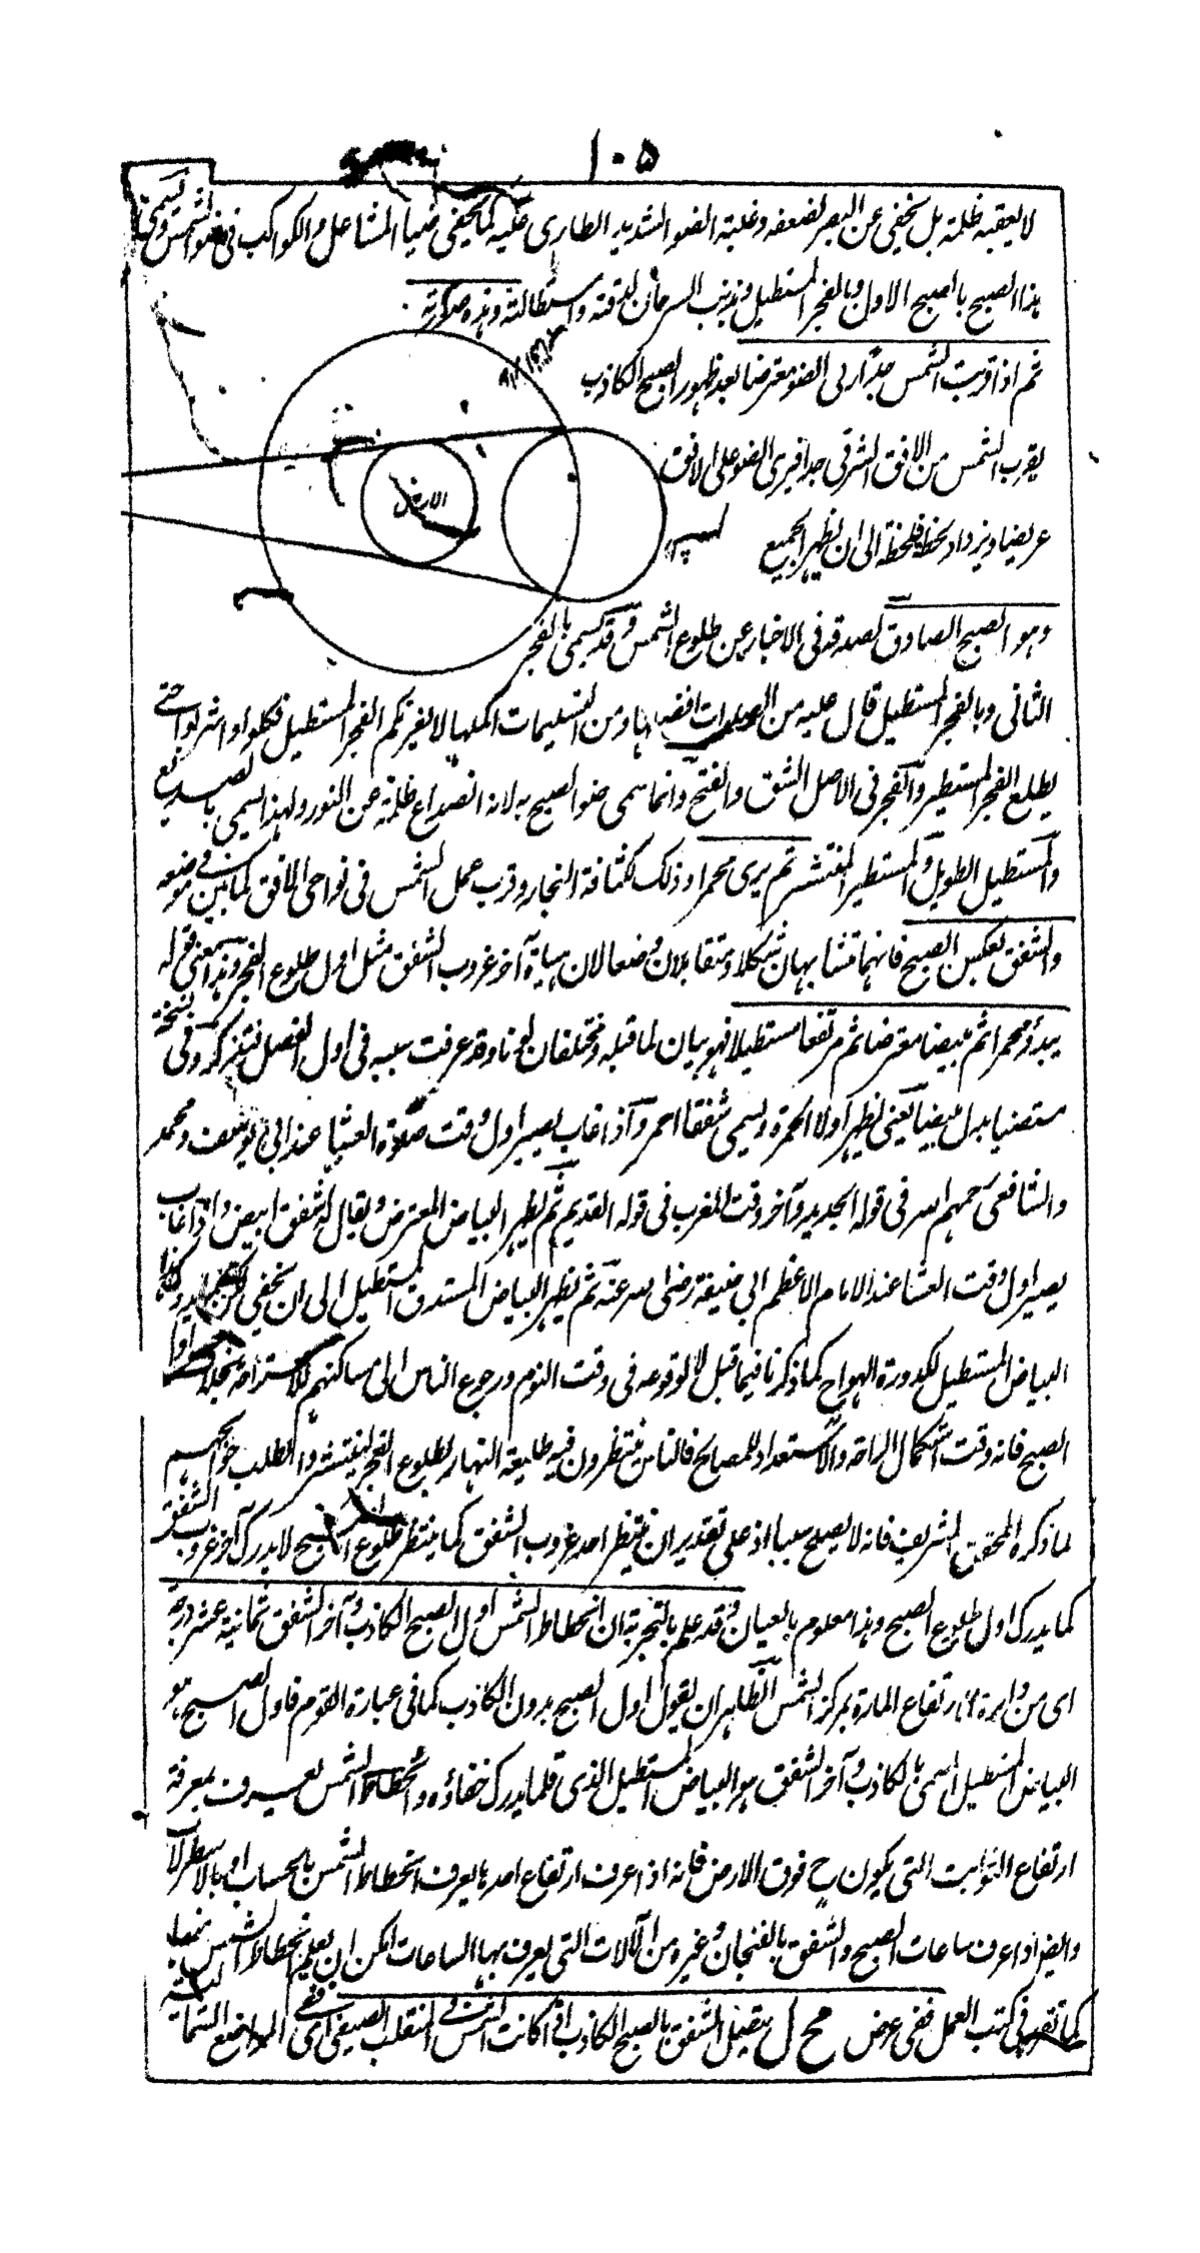 ١٠٥
لا يعقبه ظلمة بل يخفى عن البصر لضعفه وغلبة الضوء الشديد الطارى عليه كما يخفى ضياء المشاعل والكواكب فى ضوء الشمس ويسمى
هذا الصبح بالصبح الاول وبالفجر المستطيل وبذنب السرحان لدقته واستطالته وهذه صورته
ثم اذا قربت الشمس جدا يرى الضوء معترضا بعد ظهور الصبح الكاذب
يقرب الشمس من الافق الشرقى جدا فيرى الضوء على الافق
عريضا ويزداد لحظة فلحظة الى ان يظهر الجميع
الارض
وهو الصبح الصادق لصدقه فى الاخبار عن طلوع الشمس وقد يسمى بالفجر
الثانى وبالفجر المستطيل قال عليه من الصلوات افضلها ومن التسليمات اكملها لا يغرنكم الفجر المستطيل فكلوا واشربوا حتى
يطلع الفجر المستطير والفجر فى الاصل الشق والفتح وانما سمى ضوء الصبح به لانه انصداع ظلمة عن النور ولهذا يسمى بالصديع
والمستطيل الطويل والمستطير المنتشر ثم يرى محمرا وذلك لكثافة البخار وقرب عمل الشمس فى نواحى الافق كما بين فى موضعه
والشفق بعكس الصبح فانهما متشابهان شكلا ومتقابلان وضعا لان هيأة آخر غروب الشفق مثل اول طلوع الفجر وهذا معنى قوله
يبدؤ محمرا ثم مبيضا معترضا ثم مرتفعا مستطيلا فهو بيان لما قبله ومختلفان لونا وقد عرفت سببه فى اول الفصل فتذكره وفى نسخة
مستضيا بدل مبيضا يعنى يظهر اولا الحمرة ويسمى شفقا احمر واذا غاب يصير اول وقت صلوة العشاء عند ابى يوسف ومحمد
والشافعى رحمهم الله فى قوله الجديد وآخر وقت المغرب فى قوله القديم ثم يظهر البياض المعترض ويقال له شفق ابيض واذا غاب
يصير اول وقت العشاء عند الامام الاعظم ابى حنيفة رضى الله عنه ثم يظهر البياض المستدق المستطيل الى ان يخفى
البياض المستطيل لكدورة الهواء كما ذكرنا فيما قبل لا لوقوعه فى وقت النوم ورجوع الناس الى مساكنهم للاستراحة بخلاف
الصبح فانه وقت استكمال الراحة والاستعداد للمصالح فالناس ينتظرون فيه طليعة النهار لطلوع الفجر لينتشروا لطلب حوائجهم
لما ذكره المحقق الشريف فانه لا يصلح سببا اذ على تقدير ان ينتظر احد غروب الشفق كما ينتظر طلوع الصبح لا يدرك آخر غروب الشفق
كما يدرك اول طلوع الصبح وهذا معلوم بالعيان وقد علم بالتجربة ان انحطاط الشمس اول الصبح الكاذب وآخر الشفق ثمانية عشر درجة
اى من دايرة الارتفاع المارة بمركز الشمس الظاهر ان يقول اول الصبح بدون الكاذب كما فى عبارة القوم فاول الصبح هو
البياض المستطيل المسمى بالكاذب وآخر الشفق هو البياض المستطيل الذى قلما يدرك خفاؤه وانحطاط الشمس يعرف بمعرفة
ارتفاع الثوابت التى يكون ح فوق الارض فانه اذا عرف ارتفاع احدها يعرف انحطاط الشمس بالحساب او بالاسطرلاب
وايضا اذا عرف ساعات الصبح والشفق بالفنجان وغيره من الآلات التى يعرف بها الساعات امكن ان يعلم انحطاط الشمس منها
كما تقرر فى كتب العمل ففى عرض مح ل يتصل الشفق بالصبح الكاذب اذا كانت الشمس فى المنقلب الصيفى اى فى المواضع الشمالية